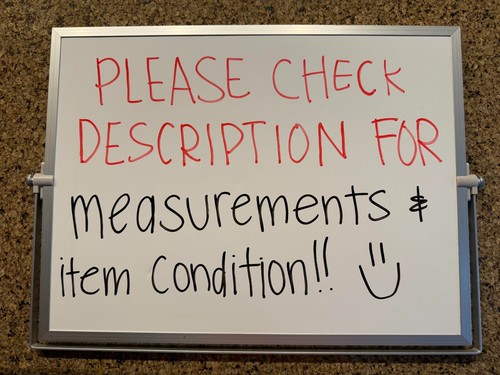 PLEASE CHECK
DESCRIPTION FOR
measurements &
item condition!!